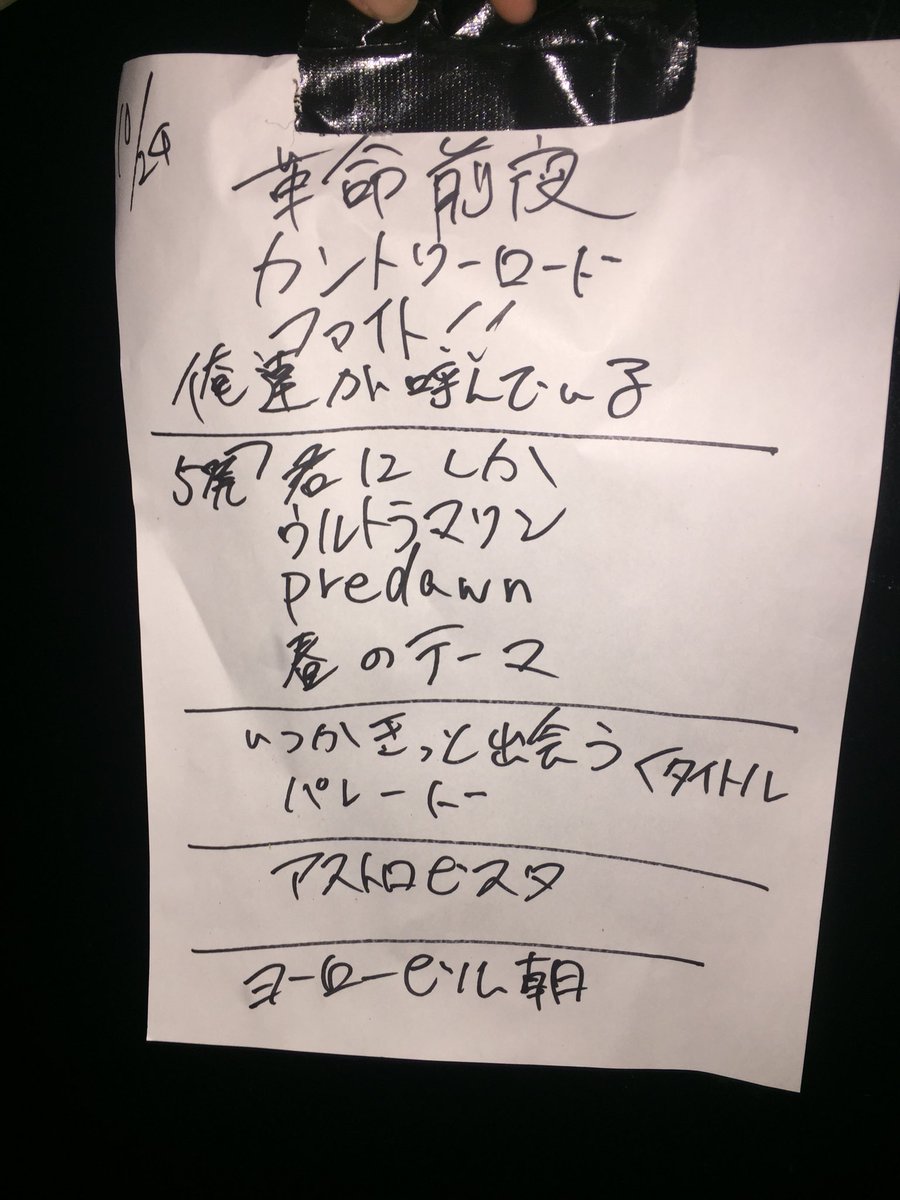 10/24
革命前夜
カントリーロード
ファイト!!
俺達が呼んでいる
5発 君にしか
ウルトラマリン
predawn
春のテーマ
いつかきっと出会う <タイトル
パレード
アストロビスタ
ヨーロービル朝